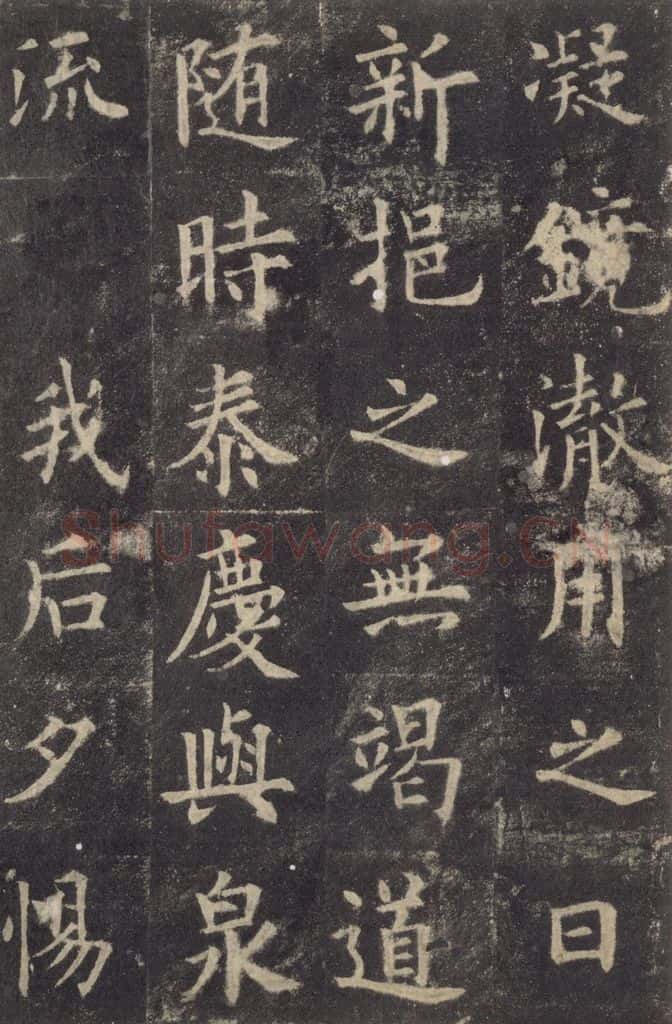 凝鏡澈用之日
新挹之無竭道
随時泰慶與泉
流 我后夕惕
Shufawang.CN